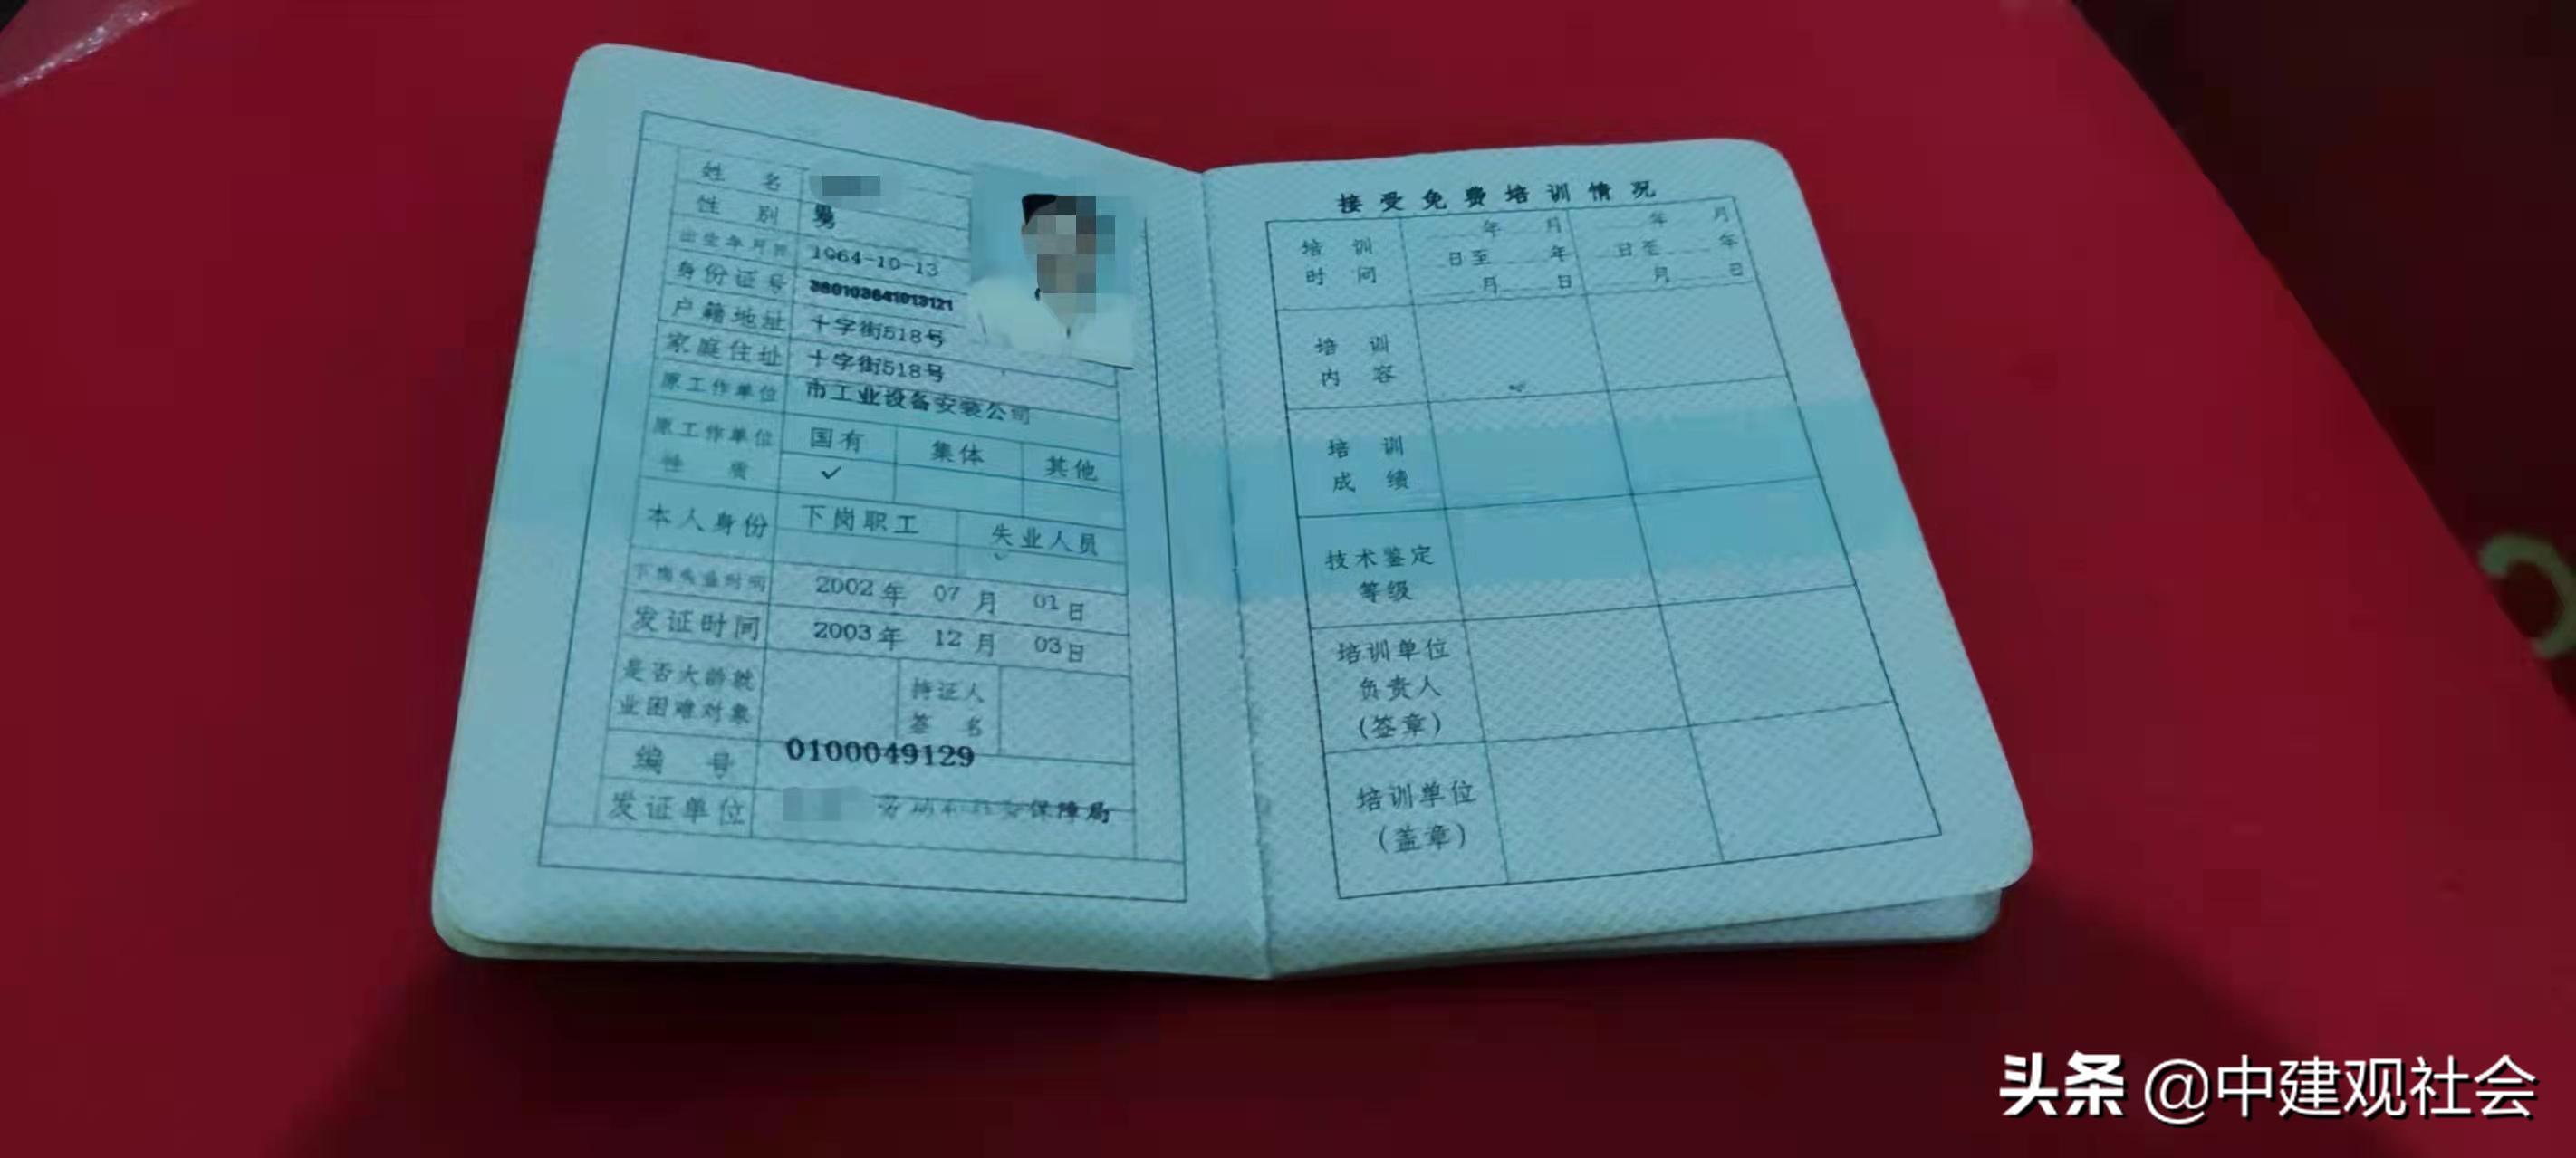 姓名
性别 男
出生年月日 1964-10-13
身份证号
户籍地址 十字街518号
家庭住址 十字街518号
原工作单位 市工业设备安装公司
原工作单位性质 国有 集体 其他
✓
本人身份 下岗职工 失业人员
✓
下岗失业时间 2002年 07月 01日
发证时间 2003年 12月 03日
是否大龄就业困难对象 持证人签名
编号 0100049129
发证单位 劳动和社会保障局
接受免费培训情况
培训时间 年 月 日至 年 月 日 年 月 日至 年 月 日
培训内容
培训成绩
技术鉴定等级
培训单位负责人(签章)
培训单位(盖章)
头条 @中建观社会